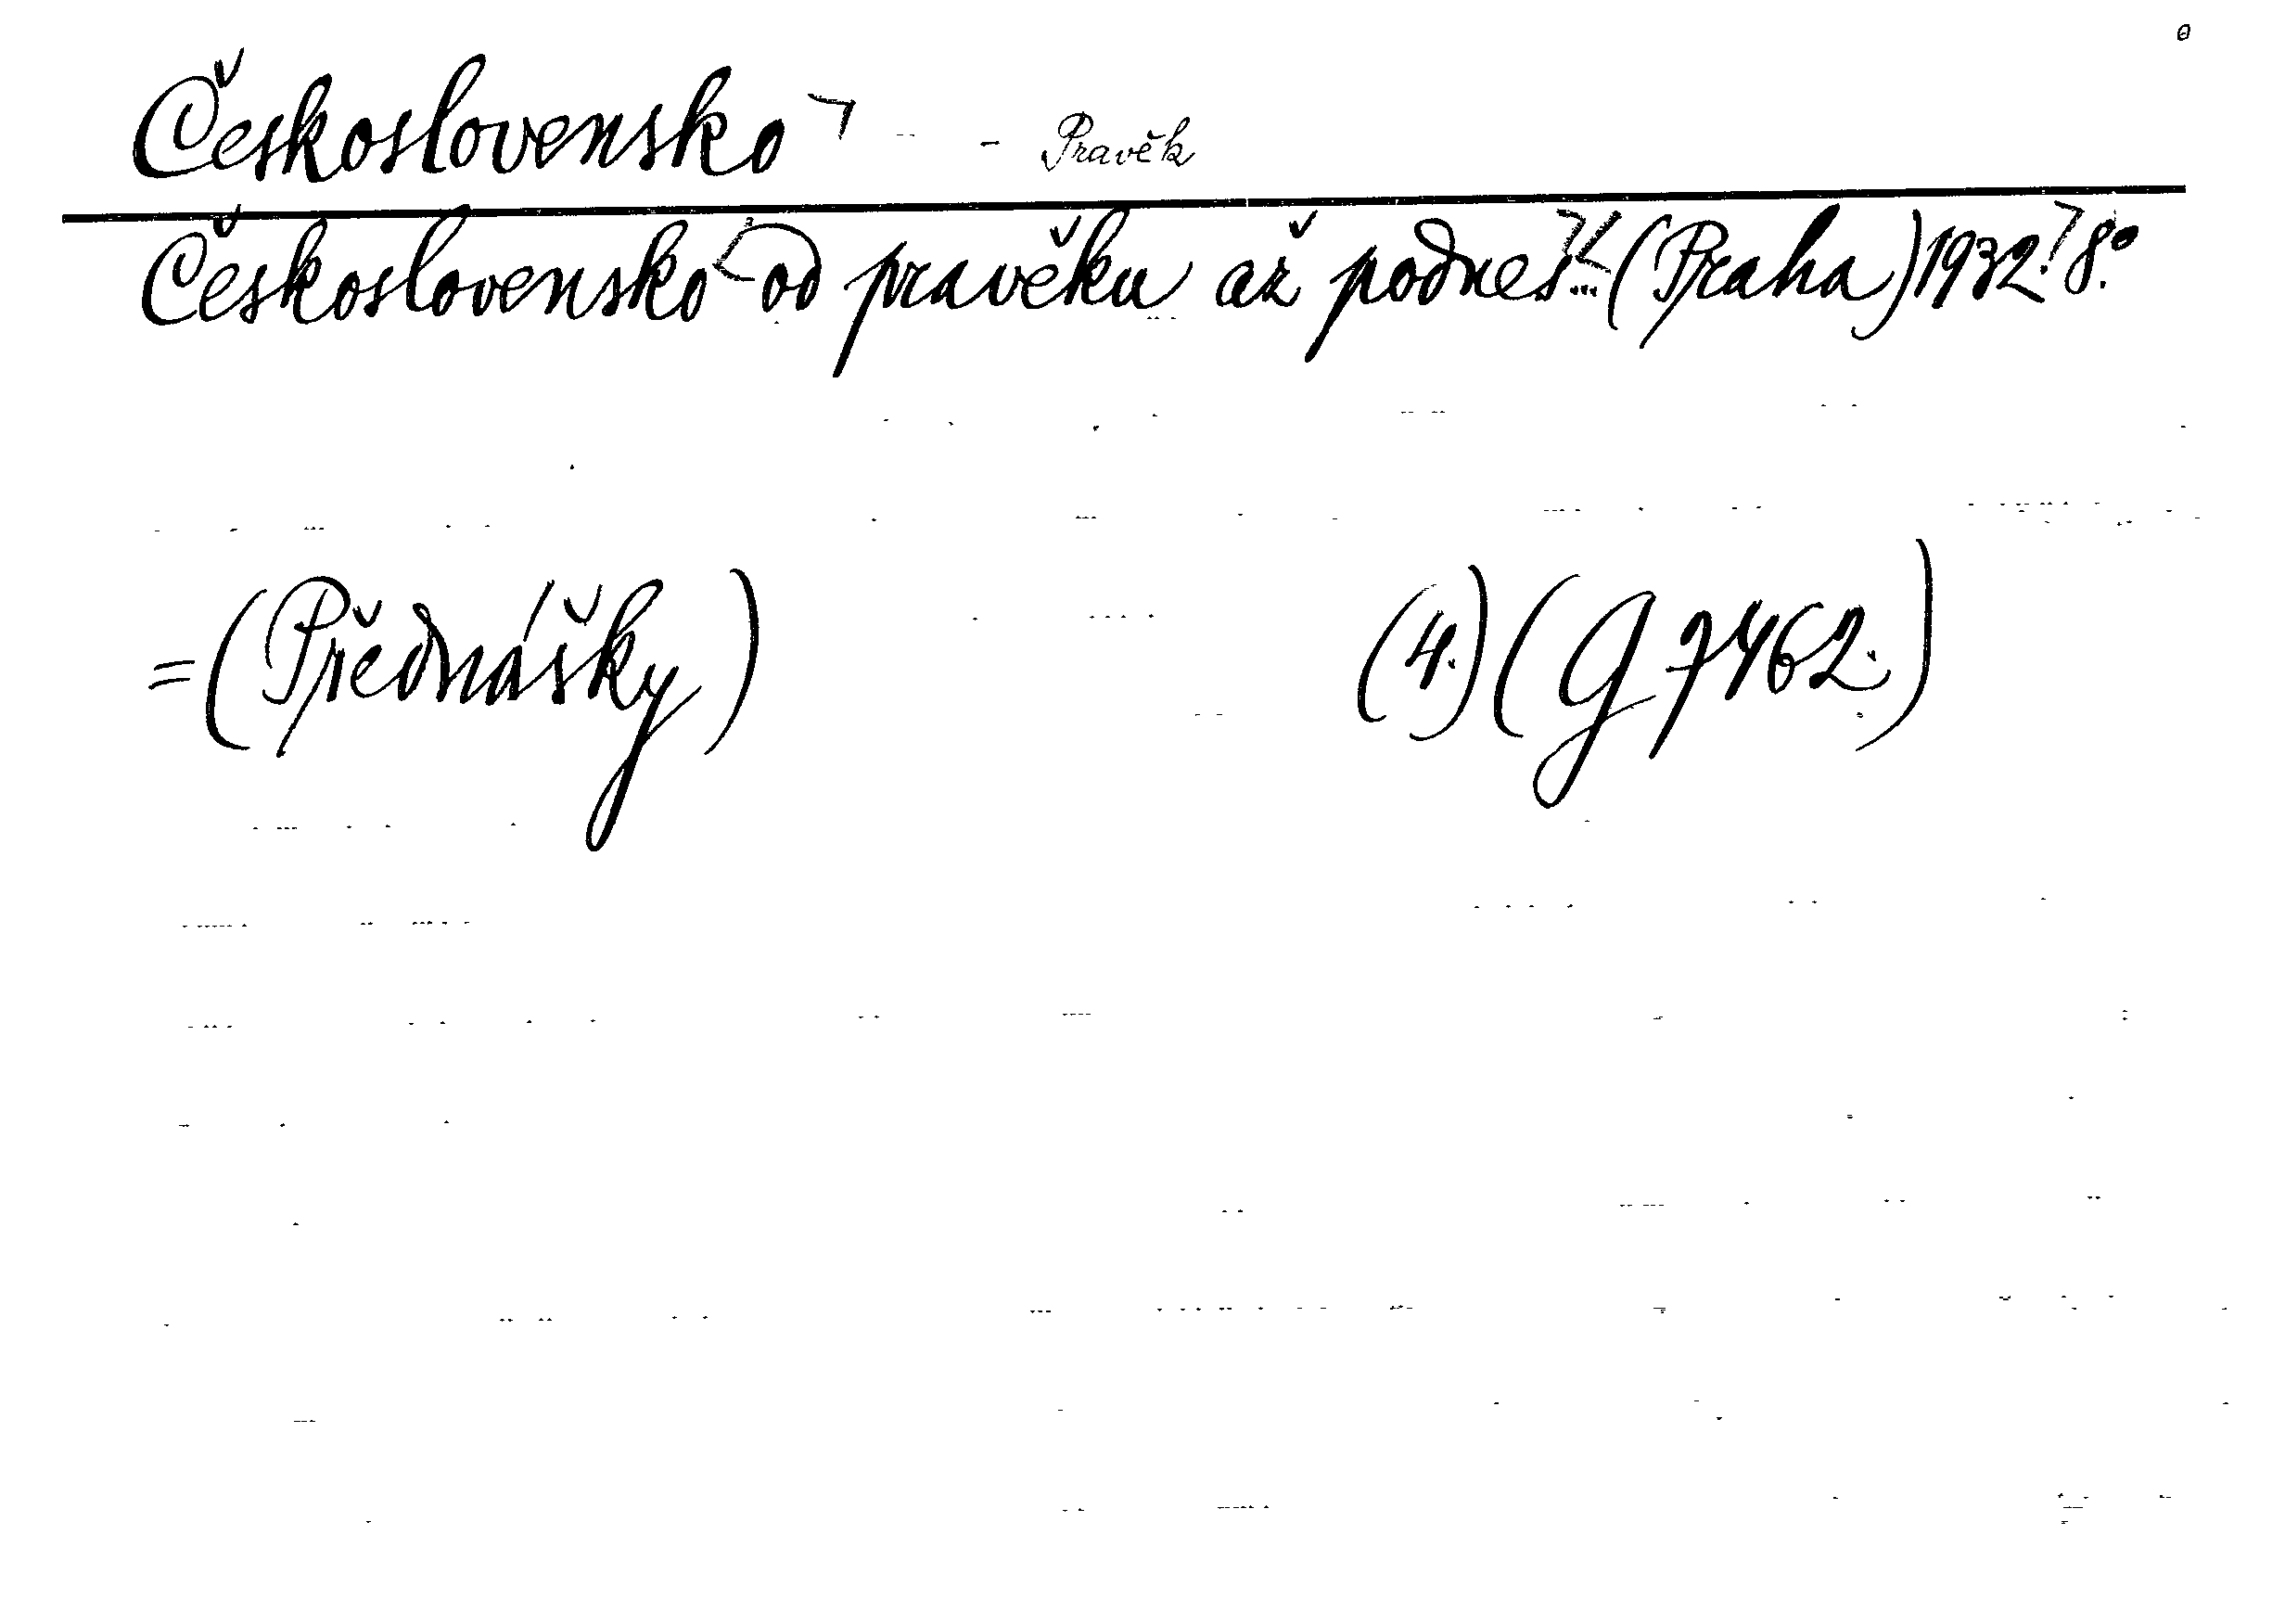 Československo - Pravěk
Československo od pravěku až podneš... (Praha) 1932. 8º.
= (Přednášky) (4.) (G 7462.)